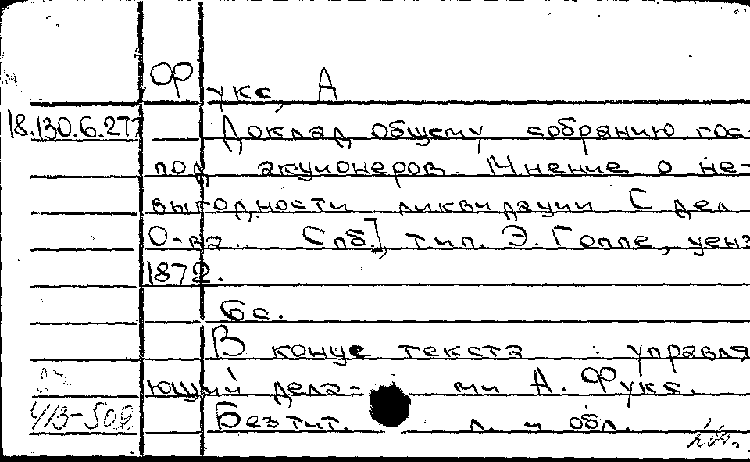 Фукс, А
18.130.6.277 Доклад общему собранию гос-
под акционеров. Мнение о не-
выгодности ликвидации [дел
О-ва. Спб.], тип. Э. Гоппе, ценз.
1872.
6 с.
В конце текста: управля-
ющий дела- ми А. Фукс.
Без тит. л. и обл.